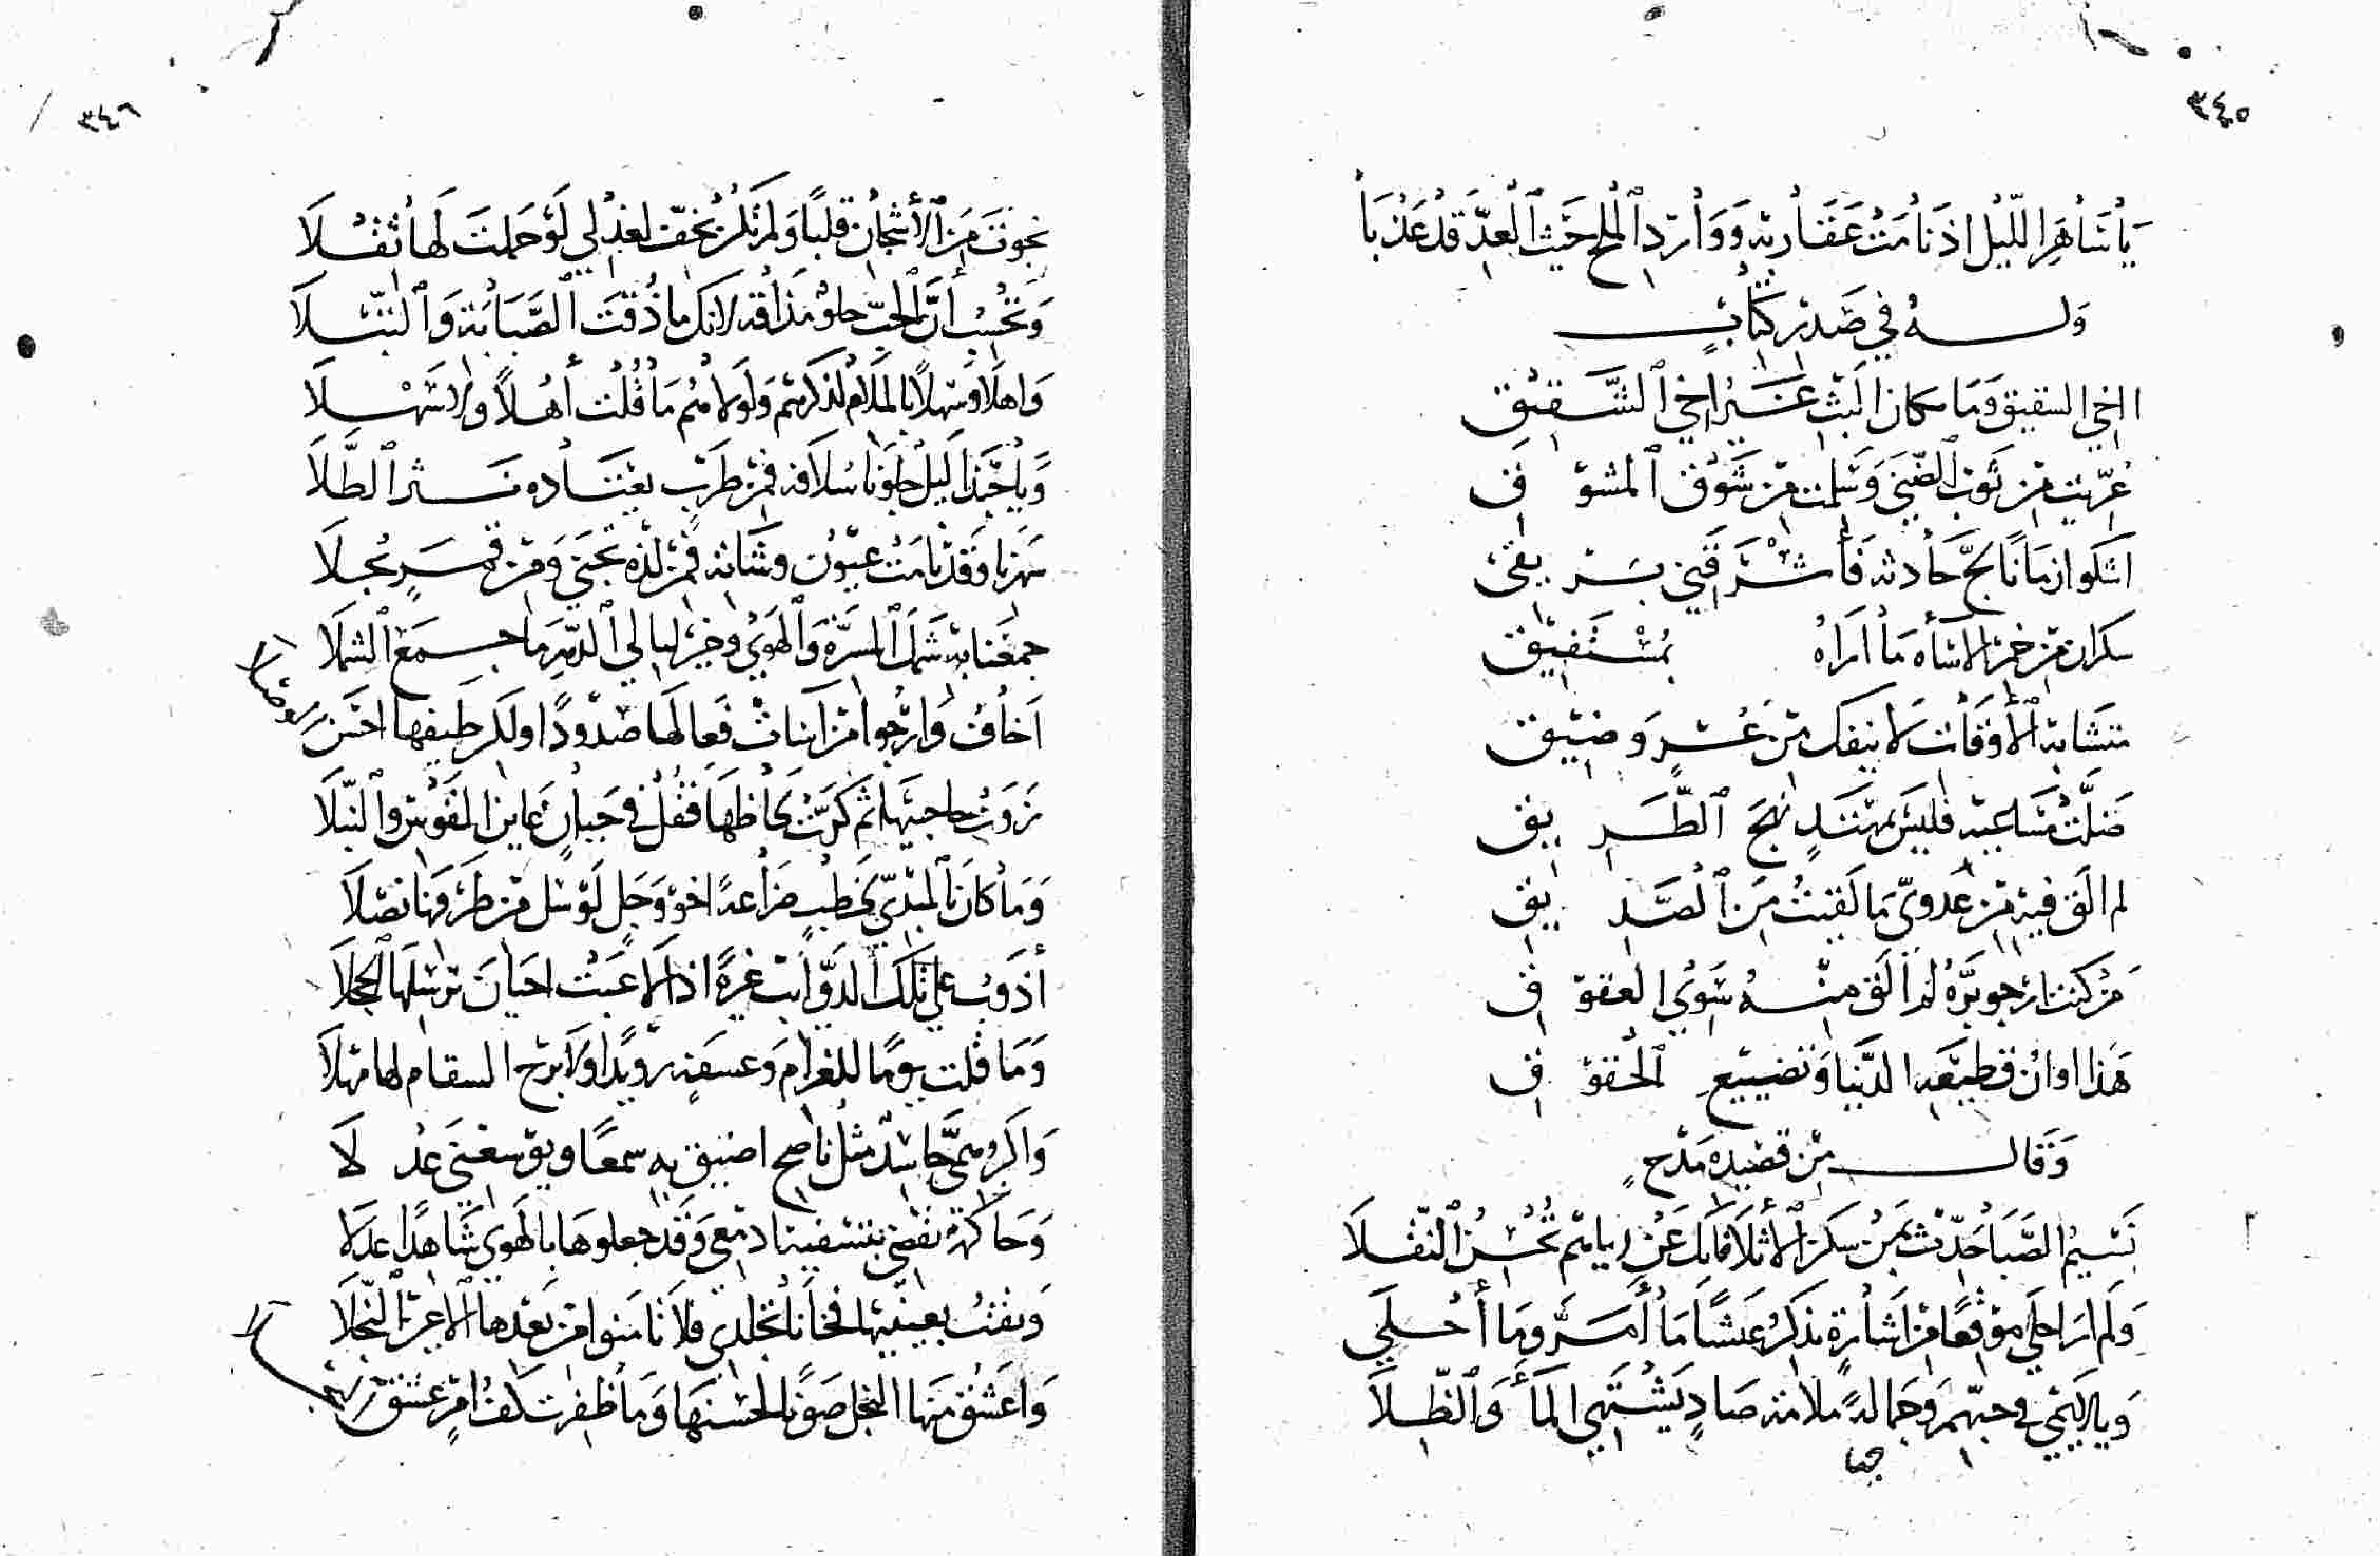 ٣٤٥
يا ساهر الليل اذ نامت عقاربه ووارد الملح حيث العد قد عذبا
وله في صدر كتاب
الاخي الشقيق وما مكان البث غير اخي الشقيق
عريت من ثوب الضنى وسلمت من شوق المشوق
اشكو زمانا لج حادثه فأشرقني بريقي
سكران من خمر الاساه ما اراه بمستفيق
متشابه الأوقات لا ينفك من عسر وضيق
ضلت مساعيه فليس بمهتد نهج الطريق
لم الق فيه من عدوى ما لقيت من الصديق
من كنت ارجو بره لم الق منه سوى العقوق
هذا اوان قطيعه الدنيا وتضييع الحقوق
وقال من قصيده مدح
نسيم الصبا حدث بمن سكن الأثلا فانك عن اياتهم تحسن النقلا
ولم ار احلى موقعا من اشارة تذكر عيشا ما أمر وما أحلى
ويا لائمي في حبهم وجماله ملامة صاد يشتهي الماء والظلا
٣٤٦
نجوت من الأشجان قلبا ولم تكن يخف لعذلي لو حملت لها ثقلا
وتحسب أن الحب حلو مذاقه لانك ما ذقت الصبابة والبتلا
واهلا وسهلا بالملام لذكرهم ولولاهم ما قلت أهلا ولا سهلا
ويا حبذا ليل جلونا سلافه فمن طرب يعتاده نثر الطلا
سهرنا وقد نامت عيون وشاته فمن لذة تجنى ومن قمر يجلا
جمعنا به شمل المسرة والهوى وخير ليالي الدهر ما جمع الشملا
اخاف وارجوا من اناث فعالها صدودا ولكن طيفها احسن وصلا
زوت حاجبيها ثم كرت لحاظها فقل في جبان عاين القوس والنبلا
وما كان بالمبدي لخطب ضراعة اخو وجل لو سل من طرفها نصلا
أذوب على تلك الذوائب غيرة اذا لاعبت احيان ترسلها الحجلا
وما قلت يوما للغرام وعسفه رويدا ولا برح السقام لها مهلا
واكر ومي حاسد مثل ناصح اضيق به سمعا ويوسعني عذلا
وحاكمة تقضي بتسفيها دمعي وقد جعلوها بالهوى شاهدا عدلا
وثقت بعينيها فخانا تجلدي فلا نامنوا من بعدها الاعين النجلا
واعشق منها البخل صونا لحسنها وما ظفرت كف امرء عشق البخلا